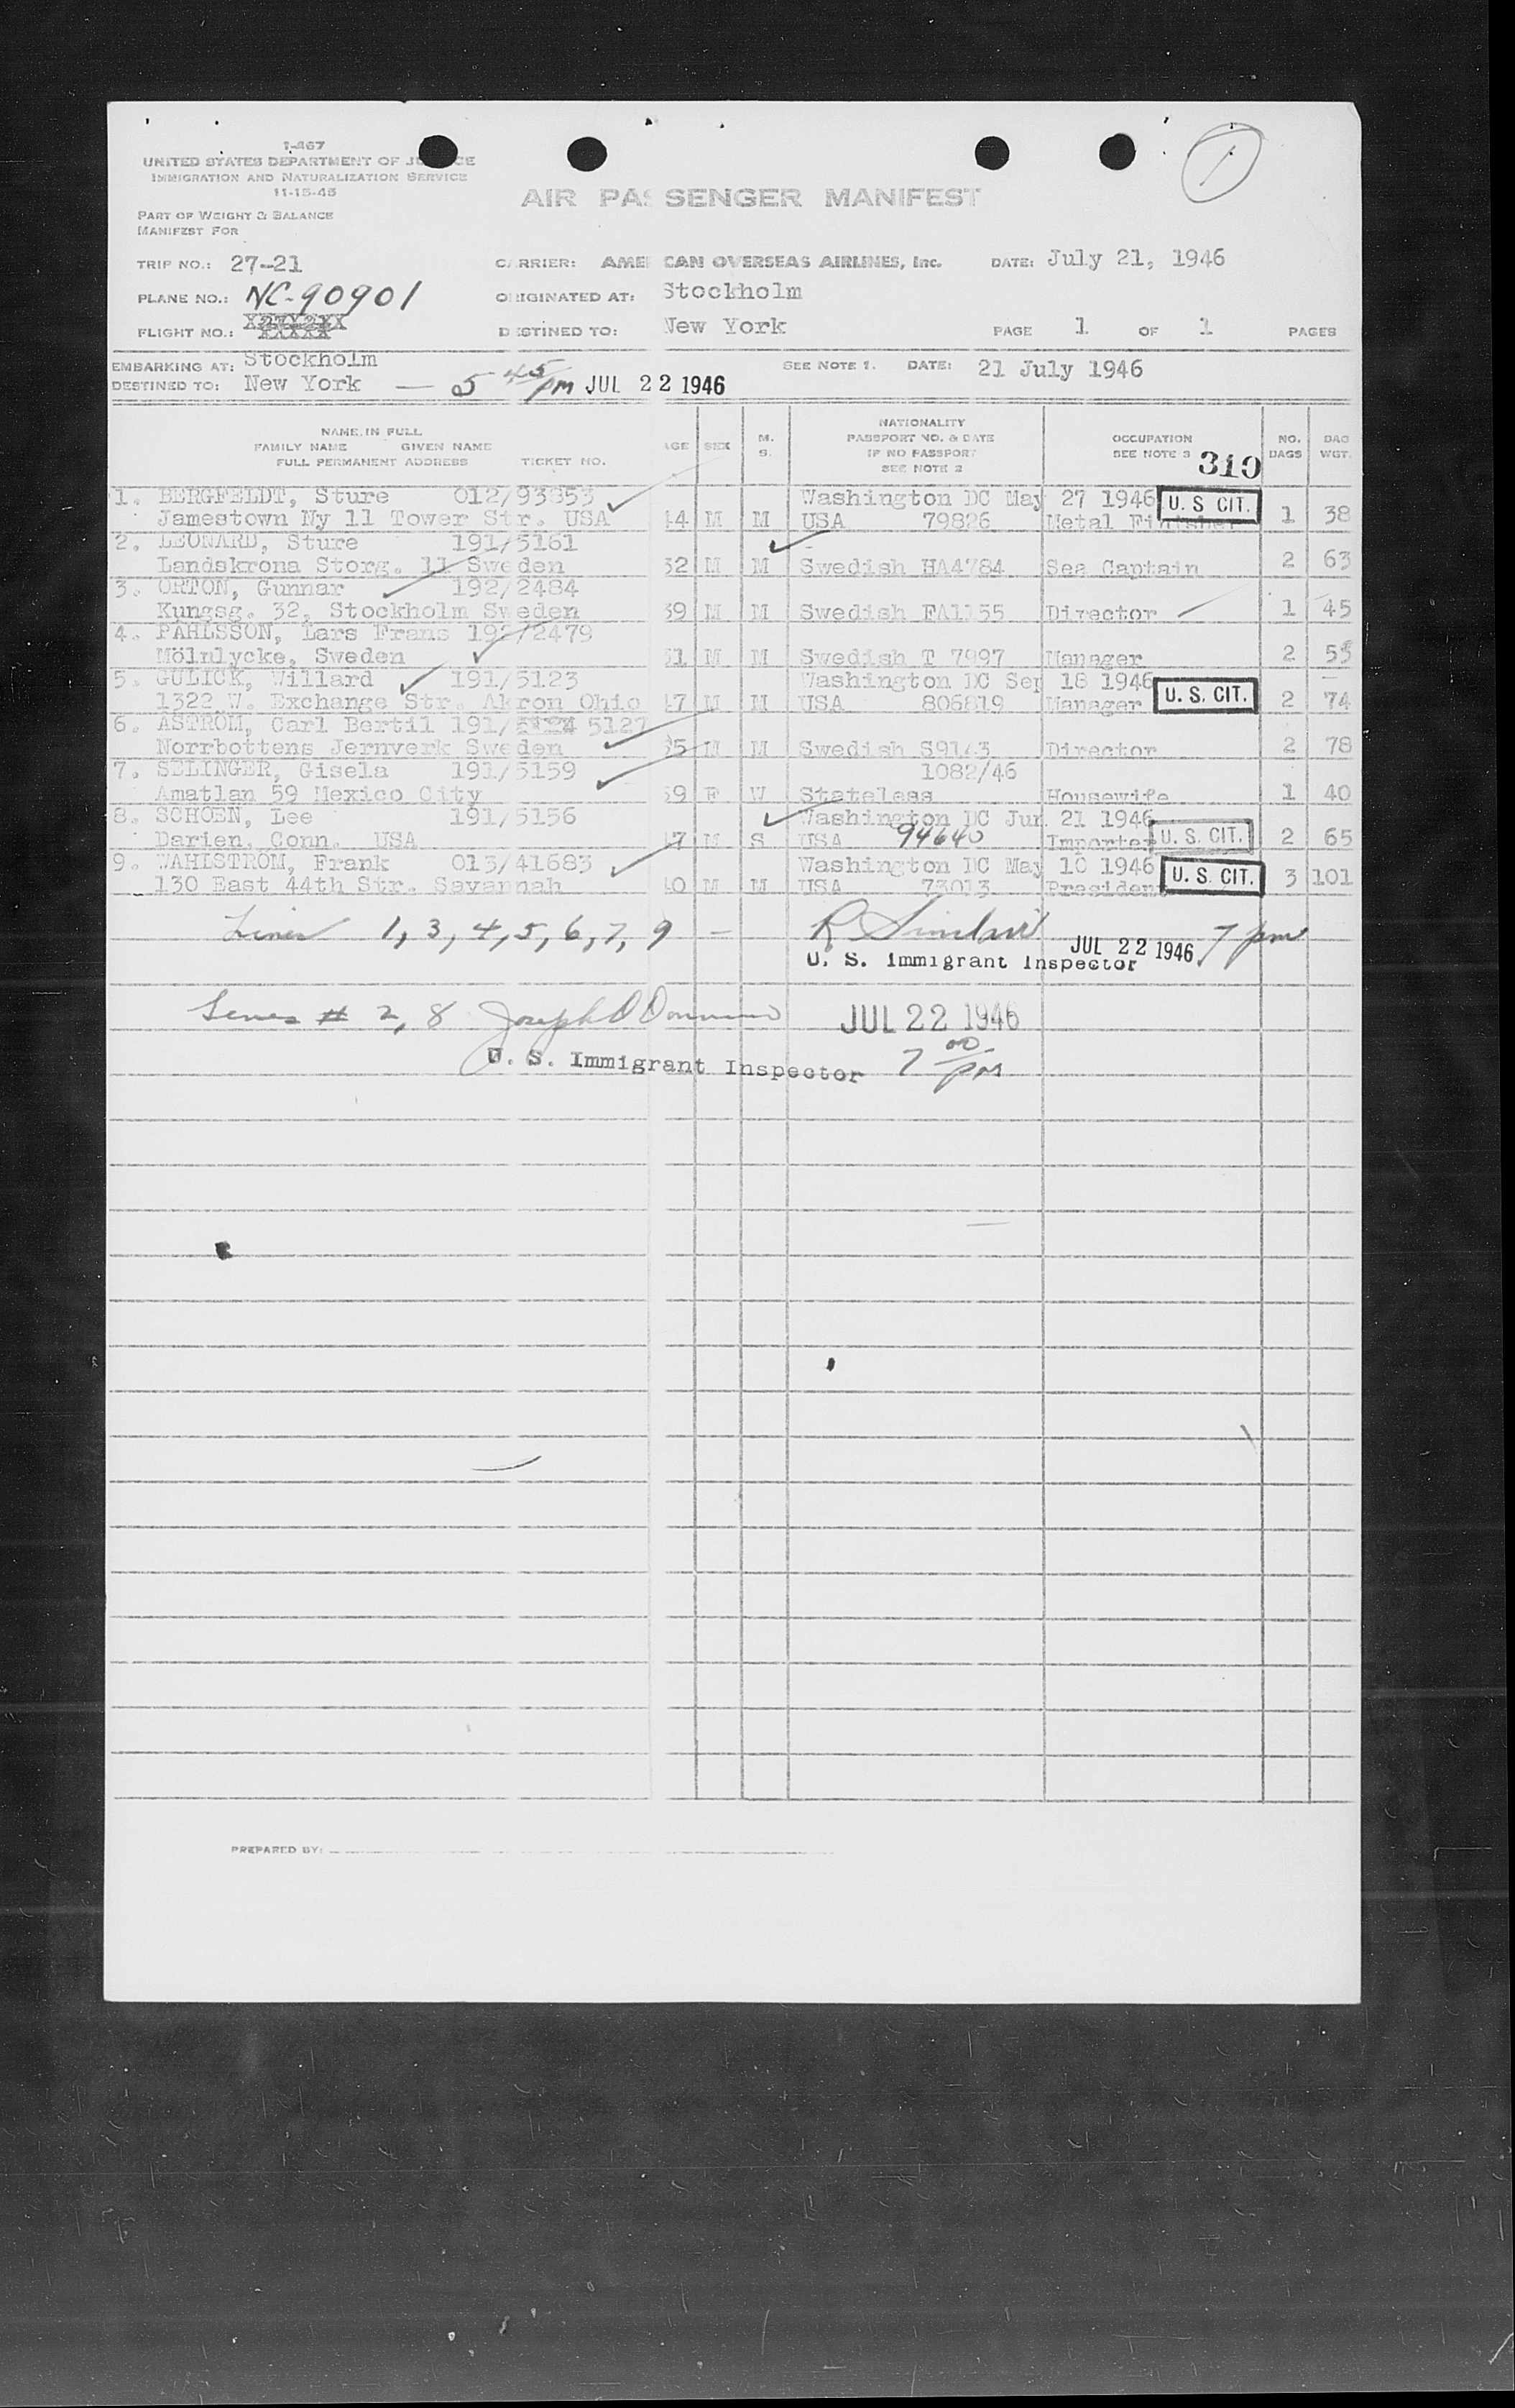 1
I-467
UNITED STATES DEPARTMENT OF JUSTICE
IMMIGRATION AND NATURALIZATION SERVICE
11-15-45
AIR PASSENGER MANIFEST
PART OF WEIGHT & BALANCE
MANIFEST FOR
TRIP NO.: 27-21 CARRIER: AMERICAN OVERSEAS AIRLINES, Inc. DATE: July 21, 1946
PLANE NO.: NC-90901 ORIGINATED AT: Stockholm
FLIGHT NO.: DESTINED TO: New York PAGE 1 OF 1 PAGES
EMBARKING AT: Stockholm SEE NOTE 1. DATE: 21 July 1946
DESTINED TO: New York — 5 45 pm JUL 22 1946
NAME IN FULL
FAMILY NAME GIVEN NAME
FULL PERMANENT ADDRESS TICKET NO.
AGE SEX M. S.
NATIONALITY
PASSPORT NO. & DATE
IF NO PASSPORT
SEE NOTE 2
OCCUPATION
SEE NOTE 3 310
NO. BAGS BAG WGT.
1. BERGFELDT, Sture 012/93853 Washington DC May 27 1946 U. S CIT.
Jamestown Ny 11 Tower Str. USA 44 M M USA 79826 Metal Finisher 1 38
2. LEONARD, Sture 191/5161 -
Landskrona Storg. 11 Sweden 32 M M Swedish HA4784 Sea Captain 2 63
3. ORTON, Gunnar 192/2484
Kungsg. 32, Stockholm Sweden 39 M M Swedish FA1155 Director 1 45
4. PAHLSSON, Lars Frans 192/2479
Mölnlycke, Sweden 51 M M Swedish T 7997 Manager 2 55
5. GULICK, Willard 191/5123 Washington DC Sep 18 1946
1322 W. Exchange Str. Akron Ohio 47 M M USA 806819 Manager U. S. CIT. 2 74
6. ASTROM, Carl Bertil 191/ 5127
Norrbottens Jernverk Sweden 35 M M Swedish S9143 Director 2 78
7. SELINGER, Gisela 191/5159 1082/46
Amatlan 59 Mexico City 59 F W Stateless Housewife 1 40
8. SCHOEN, Lee 191/5156 Washington DC Jun 21 1946
Darien, Conn. USA 47 M S USA 94640 Importer U. S. CIT. 2 65
9. WAHLSTROM, Frank 013/41683 Washington DC May 10 1946
130 East 44th Str. Savannah 40 M M USA 73013 President U. S. CIT. 3 101
Lines 1, 3, 4, 5, 6, 7, 9 — R Sinclair
U. S. Immigrant Inspector JUL 22 1946 7 pm
Lines # 2, 8 Joseph O'Donnell JUL 22 1946
U. S. Immigrant Inspector 7 00 pm
PREPARED BY: